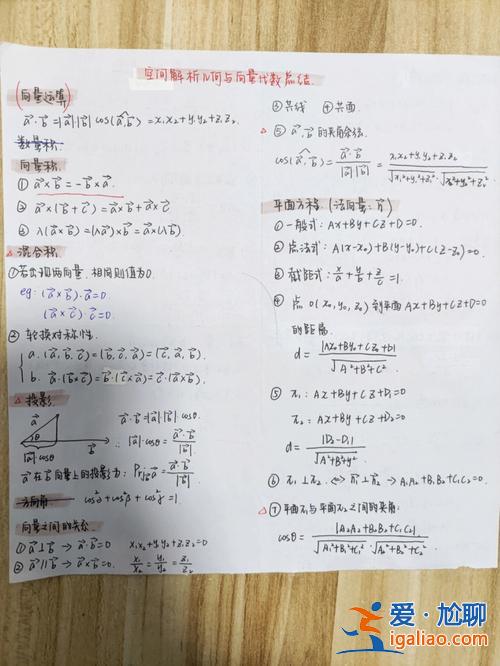 空间解析几何与向量代数总结.
(向量运算)
a⃗·b⃗=|a⃗|·|b⃗|cos(a⃗,b⃗)=x₁x₂+y₁y₂+z₁z₂
数量积.
向量积
① a⃗×b⃗=-b⃗×a⃗.
② a⃗×(b⃗+c⃗)=a⃗×b⃗+a⃗×c⃗
③ λ(a⃗×b⃗)=(λa⃗)×b⃗=a⃗×(λb⃗)
△ 混合积
①若出现两向量,相同则值为0.
eg: (a⃗×b⃗)·a⃗=0.
(a⃗×c⃗)·c⃗=0
② 轮换对称性.
a. (a⃗,b⃗,c⃗)=(b⃗,c⃗,a⃗)=(c⃗,a⃗,b⃗).
b. a⃗·(b⃗×c⃗)=b⃗·(c⃗×a⃗)=c⃗·(a⃗×b⃗)
△ 投影
a⃗·b⃗=|a⃗|·|b⃗|·cosθ.
∴|a⃗|·cosθ=a⃗·b⃗/|b⃗|
a⃗ θ b⃗
|a⃗|·cosθ
a⃗在b⃗向量上的投影为: Prj_b a⃗=a⃗·b⃗/|b⃗|
方向角. cos²α+cos²β+cos²γ=1.
向量之间的关系
① a⃗⊥b⃗ → a⃗·b⃗=0 x₁x₂+y₁y₂+z₁z₂=0
② a⃗∥b⃗ → a⃗×b⃗=0. x₁/x₂=y₁/y₂=z₁/z₂
③共线 ④共面.
△ ⑤ a⃗·b⃗的夹角余弦.
cos(a⃗,b⃗)=a⃗·b⃗/|a⃗||b⃗|=x₁x₂+y₁y₂+z₁z₂/√x₁²+y₁²+z₁²·√x₂²+y₂²+z₂²
平面方程.(法向量:n⃗)
①一般式: Ax+By+Cz+D=0.
②点法式: A(x-x₀)+B(y-y₀)+C(z-z₀)=0.
③截距式: x/a+y/b+z/c=1.
④点0(x₀,y₀,z₀)到平面Ax+By+Cz+D=0
的距离.
d=|Ax₀+By₀+Cz₀+D|/√A²+B²+C²
⑤ π₁: Ax+By+Cz+D₁=0
π₂: Ax+By+Cz+D₂=0
d=|D₂-D₁|/√A²+B²+C²
⑥ π₁⊥π₂. ⟺ n₁⃗⊥n₂⃗ → A₁A₂+B₁B₂+C₁C₂=0.
△ ⑦平面π₁与平面π₂之间的夹角:
cosθ=|A₁A₂+B₁B₂+C₁C₂|/√A₁²+B₁²+C₁²·√A₂²+B₂²+C₂²
爱·尬聊
igaliao.com